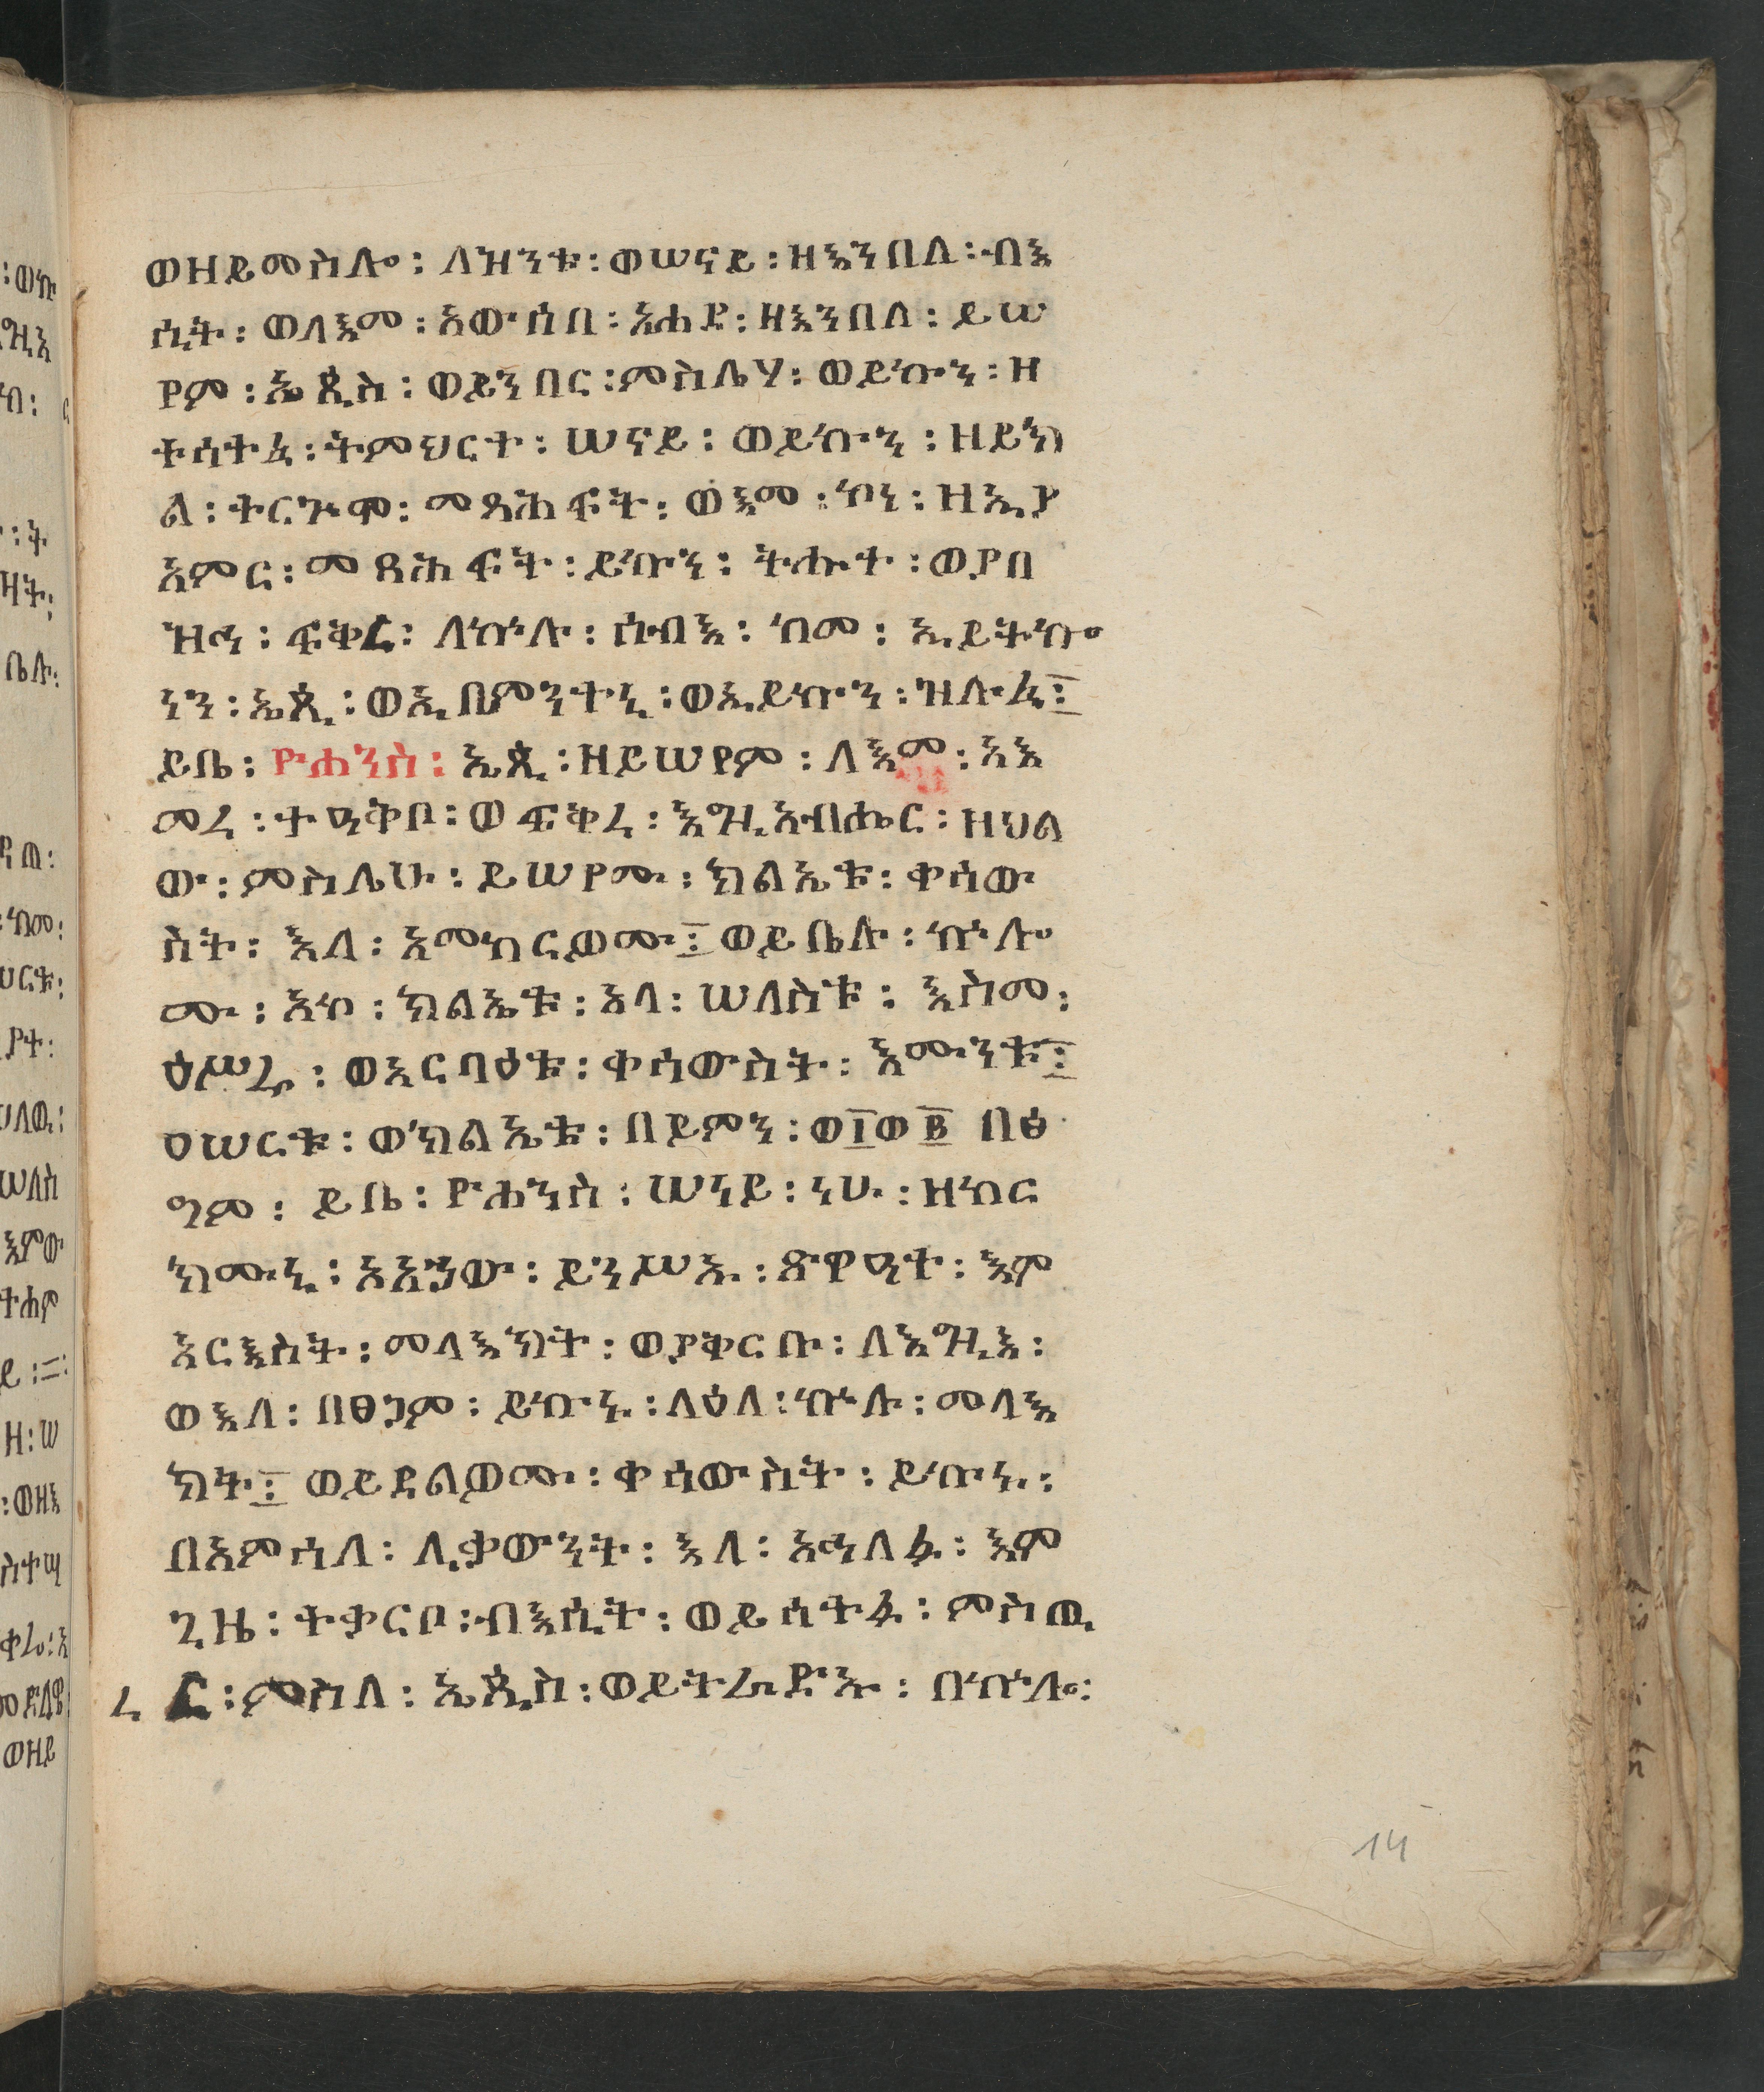 ወዘይመስሎ፡ ለዝንቱ፡ ወሠናይ፡ ዘእንበለ፡ ብእ
ሲት፡ ወለእመ፡ አውሰበ፡ አሐደ፡ ዘእንበለ፡ ይሡ
የም፡ ኤጲስ፡ ወይንበር፡ ምስሌሃ፡ ወይኩን፡ ዘ
ቶሰተፈ፡ ትምህርተ፡ ሠናይ፡ ወይኩን፡ ዘይክ
ል፡ ተርጕሞ፡ መጻሕፍት፡ ወእመ፡ ኮነ፡ ዘኢያ
አምር፡ መጻሕፍት፡ ይኩን፡ ትሑተ፡ ወያበ
ዝኅ፡ ፍቅረ፡ ለኵሉ፡ ሰብእ፡ ከመ፡ ኢይትኰ
ነን፡ ኤጲ፡ ወኢበምንተኒ፡ ወኢይኩን፡ ዝሉፈ፤
ይቤ፡ ዮሐንስ፡ ኤጲ፡ ዘይሠየም፡ ለእመ፡ አእ
መረ፡ ተዓቅቦ፡ ወፍቅረ፡ እግዚአብሔር፡ ዘህል
ው፡ ምስሌሁ፡ ይሠየሙ፡ ክልኤቱ፡ ቀሳው
ስት፡ እለ፡ አመከርወሙ፤ ወይቤሉ፡ ኵሎ
ሙ፡ አኮ፡ ክልኤቱ፡ አላ፡ ሠለስቱ፡ እስመ፡
ዕሥራ፡ ወአርባዕቱ፡ ቀሳውስት፡ እሙንቱ፤
ዐሠርቱ፡ ወክልኤቱ፡ በይምን፡ ወ፲ወ፪ በፅ
ግም፡ ይቤ፡ ዮሐንስ፡ ሠነይ፡ ነሁ፡ ዘከር
ክሙኒ፡ አአኃው፡ ይንሥኡ፡ ጽዋዓተ፡ እም
አርእስት፡ መላእክት፡ ወያቅርቡ፡ ለእግዚእ፡
ወእለ፡ በፀጋም፡ ይኩኑ፡ ለዕለ፡ ኵሉ፡ መላእ
ክት፤ ወይደልወሙ፡ ቀሳውስት፡ ይኩኑ፡
በአምሳለ፡ ሊቃውንት፡ እለ፡ አኅለፉ፡ እም
ጊዜ፡ ተቃርቦ፡ ብእሲት፡ ወይሰተፉ፡ ምስጢ
ረ ር፡ ምስለ፡ ኤጲስ፡ ወይትራድኡ፡ በኵሎ፡
14